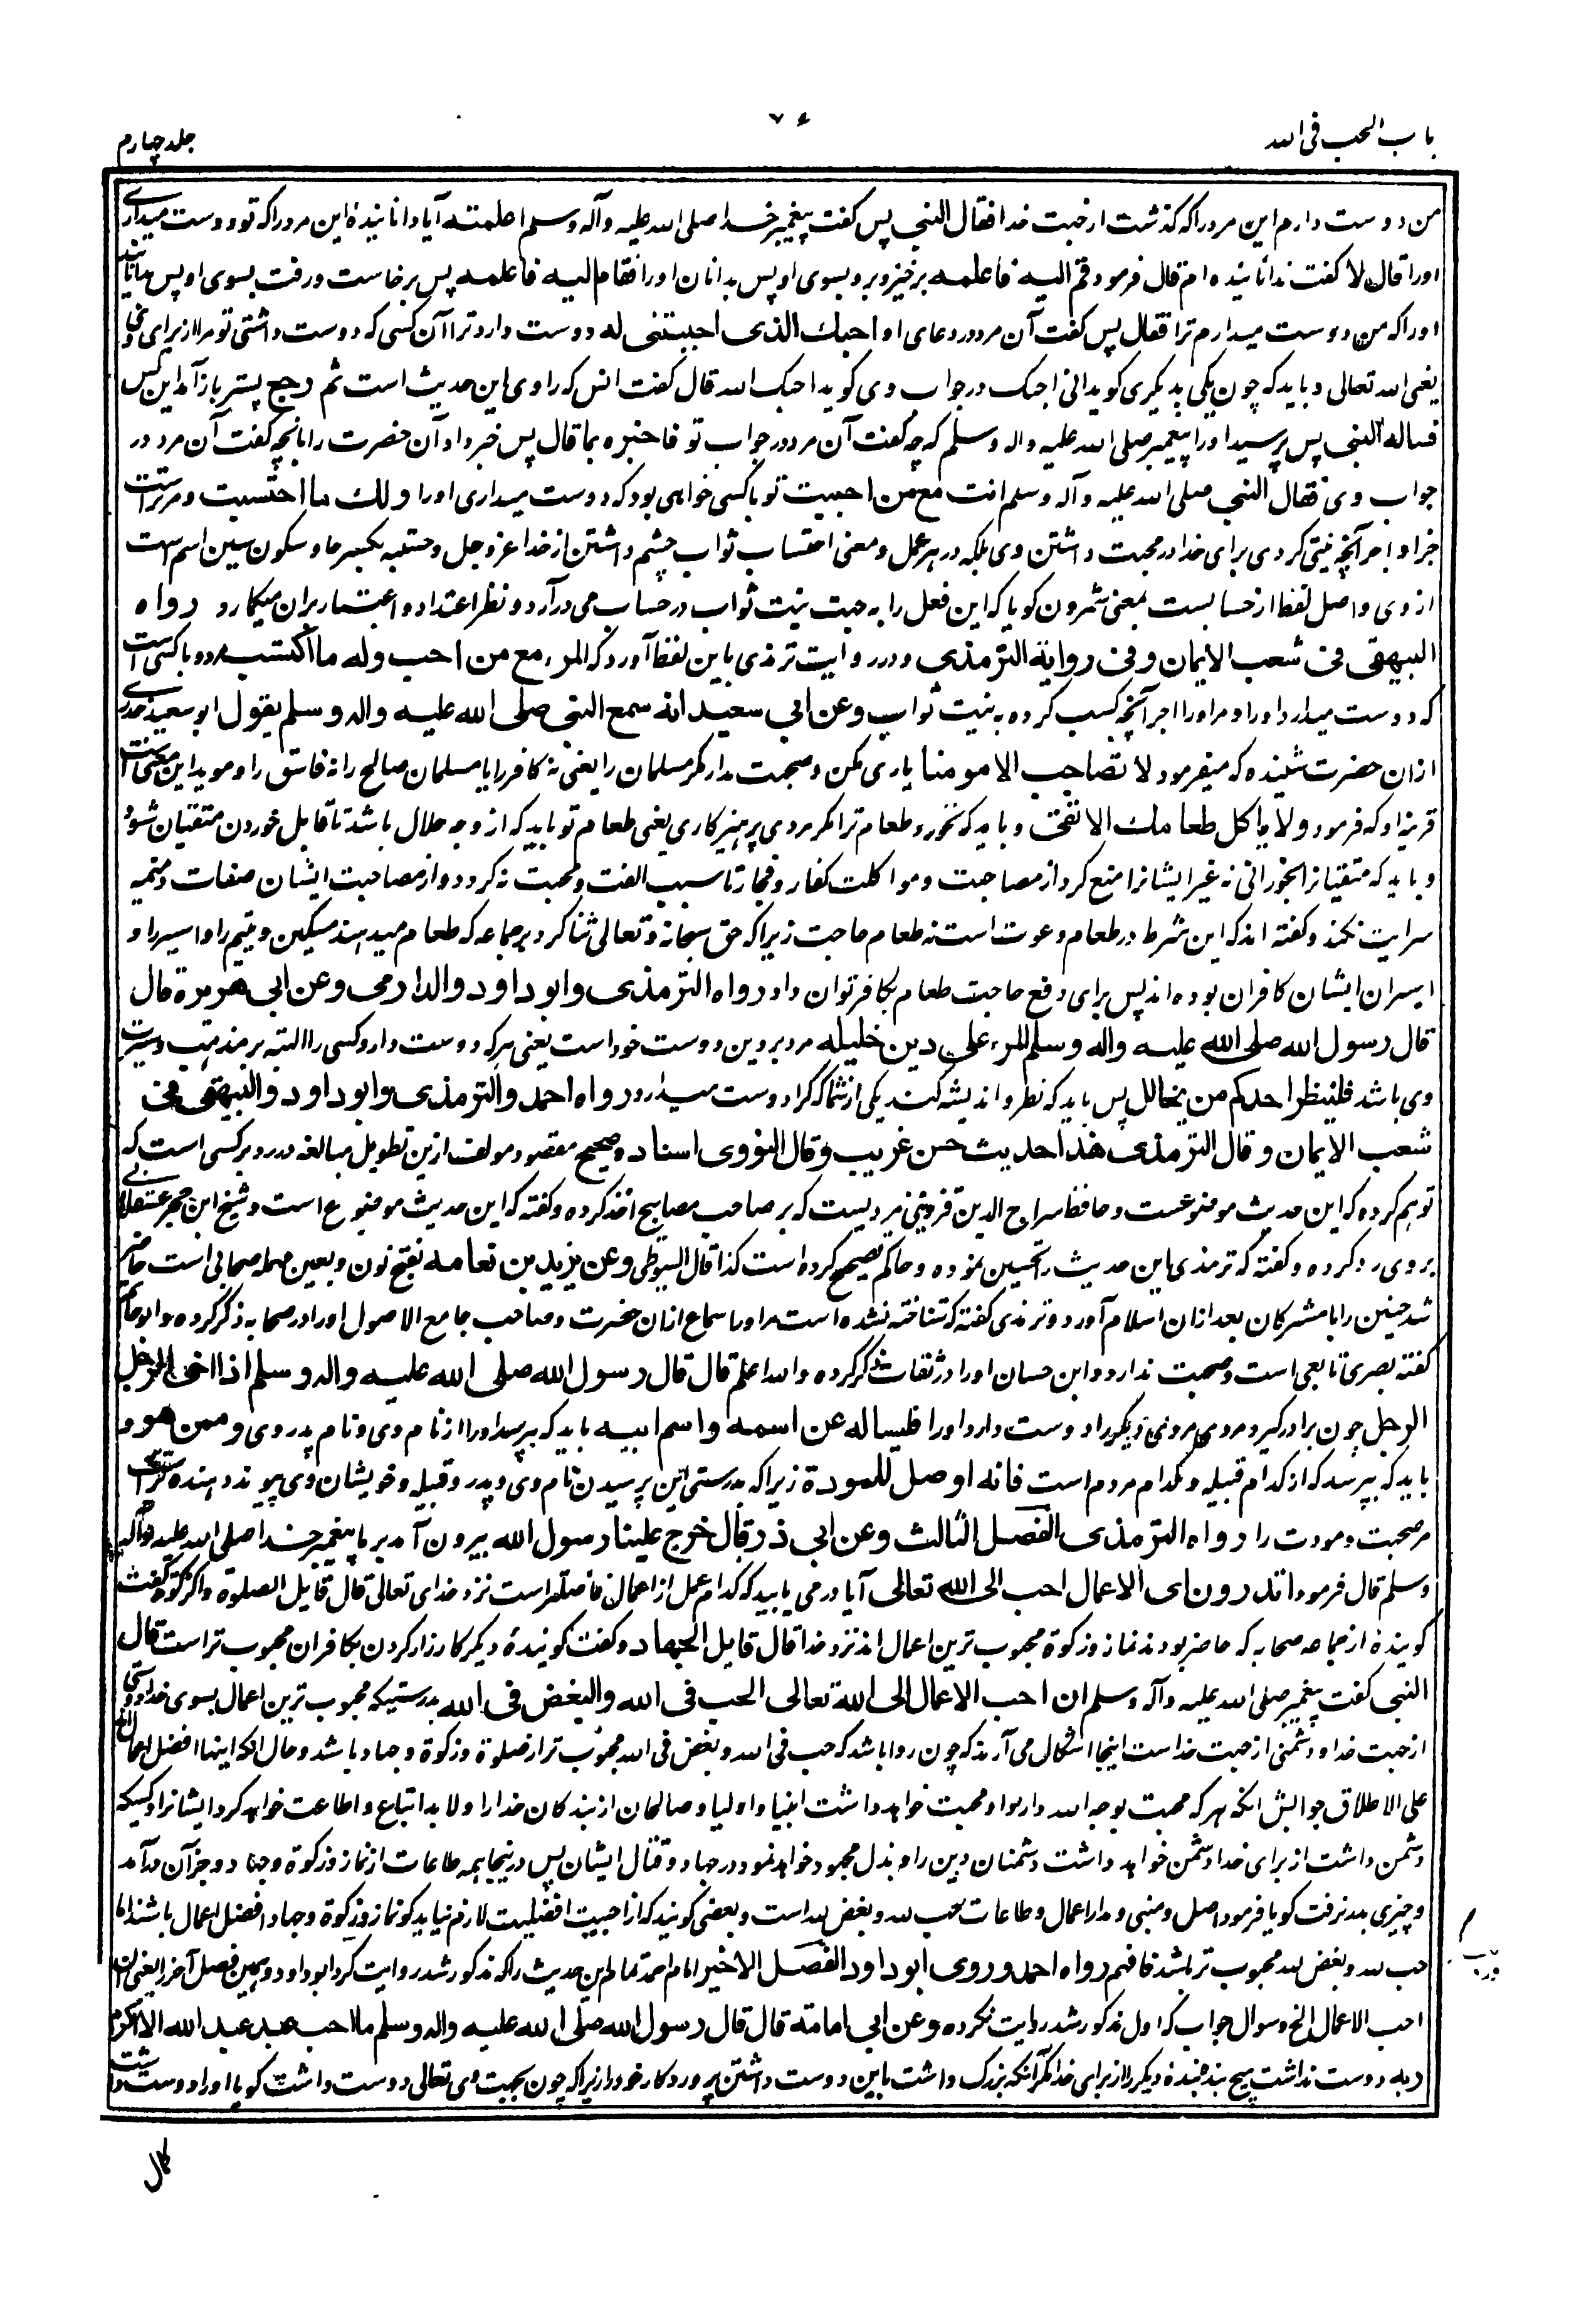 باب الحب فی الله
۷۴
جلد چهارم
من دوست دارم این مرد را که گذشت از جهت خدا فقال النبی پس گفت پیغمبر خدا صلی الله علیه وآله وسلم اعلمته آیا دانانیدهٔ این مرد را که تو دوست میداری
اورا قال لا گفت ندانانیده ام قال فرمود قم الیه فاعلمه برخیز و برو بسوی او پس بدانان اورا فقام الیه فاعلمه پس برخاست و رفت بسوی او پس دانانید
اورا که من دوست میدارم ترا فقال پس گفت آن مرد در دعای او احبك الذی احببتنی له دوست دارد ترا آن کسی که دوست داشتی تو مرا از برای وی
یعنی الله تعالی و باید که چون یکی بدیگری گوید انی احبک در جواب وی گوید احبک الله قال گفت انس که راوی این حدیث است ثم رجع پستر باز آمد این کس
فساله النبی پس پرسید اورا پیغمبر صلی الله علیه واله وسلم که چه گفت آن مرد در جواب تو فاخبره بما قال پس خبر داد آن حضرت را بانچه گفت آن مرد در
جواب وی فقال النبی صلی الله علیه وآله وسلم انت مع من احببت تو باکسی خواهی بود که دوست میداری اورا ولك ما احتسبت و مر تراست
جزا و اجر آنچه نیتی کردی برای خدا در محبت داشتن وی بلکه در هر عمل و معنی احتساب ثواب چشم داشتن از خدا عزوجل و حسبه بکسر حا و سکون سین اسم است
از وی و اصل لفظ از حسابست بمعنی شمردن گویا که این فعل را به جهت نیت ثواب در حساب می درآرد و نظر اعتداد و اعتبار بران میگمارد رواه
البیهقی فی شعب الایمان وفی روایة الترمذی و در روایت ترمذی باین لفظ آورد که المرء مع من احب وله ما اکتسب مرد با کسی است
که دوست میدارد اورا و مر اورا اجر آنچه کسب کرده به نیت ثواب وعن ابی سعید انه سمع النبی صلی الله علیه واله وسلم یقول ابو سعید خدری
ازان حضرت شنیده که میفرمود لا تصاحب الا مومنا یاری مکن و صحبت مدار مگر مسلمان را یعنی نه کافر را یا مسلمان صالح را نه فاسق را و موید این معنی است
قرینه او که فرمود ولا یاکل طعامك الا تقی و باید که نخورد طعام ترا مگر مردی پرهیزگاری یعنی طعام تو باید که از وجه حلال باشد تا قابل خوردن متقیان شود
و باید که متقیانرا بخورانی نه غیر ایشانرا منع کرد از مصاحبت و مواکلت کفار و فجار تا سبب الفت و محبت نگردد و از مصاحبت ایشان صفات ذمیمه
سرایت نکند و گفته اند که این شرط در طعام دعوت است نه طعام حاجت زیرا که حق سبحانه وتعالی ثنا کرد بر جماعه که طعام میدهند مسکین و یتیم را و اسیر را و
اسیران ایشان کافران بوده اند پس برای دفع حاجت طعام بکافر توان داد رواه الترمذی وابو داود والدارمی وعن ابی هریرة قال
قال رسول الله صلی الله علیه واله وسلم المرء علی دین خلیله مرد بر دین دوست خود است یعنی هر که دوست دارد کسی را البته بر مذهب و سیرت
وی باشد فلینظر احدکم من یخالل پس باید که نظر و اندیشه کند یکی از شما که کرا دوست میدارد رواه احمد والترمذی وابو داود والبیهقی فی
شعب الایمان وقال الترمذی هذا حدیث حسن غریب وقال النووی اسناده صحیح مقصود مولف ازین تطویل مبالغه در رد بر کسی است که
توهم کرده که این حدیث موضوعست و حافظ سراج الدین قزوینی مردیست که بر صاحب مصابیح اخذ کرده و گفته که این حدیث موضوع است و شیخ ابن حجر عسقلانی
بر وی رد کرده و گفته که ترمذی این حدیث را تحسین نموده و حاکم تصحیح کرده است کذا قال السیوطی وعن یزید بن نعامه بفتح نون و بعین مهمله صحابی است حاضر
شد حنین را با مشرکان بعد ازان اسلام آورد و ترمذی گفته که شناخته نشده است مر اورا سماع ازان حضرت و صاحب جامع الاصول اورا در صحابه ذکر کرده و ابو حاتم
گفته بصری تابعی است و صحبت ندارد و ابن حسان اورا در ثقات ذکر کرده والله اعلم قال قال رسول الله صلی الله علیه واله وسلم اذا اخی الرجل
الرجل چون برادر گیرد مردی مردی دیگر را و دوست دارد اورا فلیساله عن اسمه واسم ابیه باید که بپرسد اورا از نام وی و نام پدر وی وممن هو و
باید که بپرسد که از کدام قبیله و کدام مردم است فانه اوصل للمودة زیرا که بدرستی این پرسیدن نام وی و پدر و قبیله و خویشان وی پیوند دهنده تر است
مر صحبت و مودت را رواه الترمذی الفصل الثالث وعن ابی ذر قال خرج علینا رسول الله بیرون آمد بر ما پیغمبر خدا صلی الله علیه وآله
وسلم قال فرمود اتدرون ای الاعمال احب الی الله تعالی آیا در می یابید که کدام عمل از اعمال فاضلتر است نزد خدای تعالی قال قایل الصلوة والزکوة گفت
گویندهٔ از جماعه صحابه که حاضر بودند نماز و زکوة محبوب ترین اعمال اند نزد خدا قال قایل الجهاد و گفت گویندهٔ دیگر کارزار کردن بکافران محبوب تر است قال
النبی گفت پیغمبر صلی الله علیه وآله وسلم ان احب الاعمال الی الله تعالی الحب فی الله والبغض فی الله بدرستیکه محبوب ترین اعمال بسوی خدا دوستی
از جهت خدا و دشمنی از جهت خداست اینجا اشکال می آرند که چون روا باشد که حب فی الله و بغض فی الله محبوب تر از صلوة و زکوة و جهاد باشد و حال آنکه اینها افضل اعمال اند
علی الاطلاق جوابش آنکه هر که محبت بوجه الله دارد او محبت خواهد داشت انبیا و اولیا و صالحان از بندگان خدا را ولا بد اتباع و اطاعت خواهد کرد ایشانرا و کسیکه
دشمن داشت از برای خدا دشمن خواهد داشت دشمنان دین را و بذل مجهود خواهد نمود در جهاد و قتال ایشان پس درینجا همه طاعات از نماز و زکوة و جهاد و جز آن درآمد
و چیزی بدر نرفت گویا فرمود اصل و مبنی و مدار اعمال و طاعات حب لله و بغض لله است و بعضی گویند که از احبیت افضلیت لازم نیاید گو نماز و زکوة و جهاد افضل اعمال باشند اما
حب لله و بغض لله محبوب تر باشد فافهم رواه احمد وروی ابو داود الفصل الاخیر امام احمد تمام این حدیث را که مذکور شد روایت کرد ابو داود همین فصل آخر را یعنی ان
احب الاعمال الخ و سوال جواب که اول مذکور شد روایت نکرده وعن ابی امامة قال قال رسول الله صلی الله علیه واله وسلم ما احب عبد عبدا لله الا اکرم
ربه دوست نداشت هیچ بنده بندهٔ دیگر را از برای خدا مگر آنکه بزرگ داشت باین دوست داشتن پروردگار خود را زیرا که چون بجهت وی تعالی دوست داشت گویا اورا دوست داشت